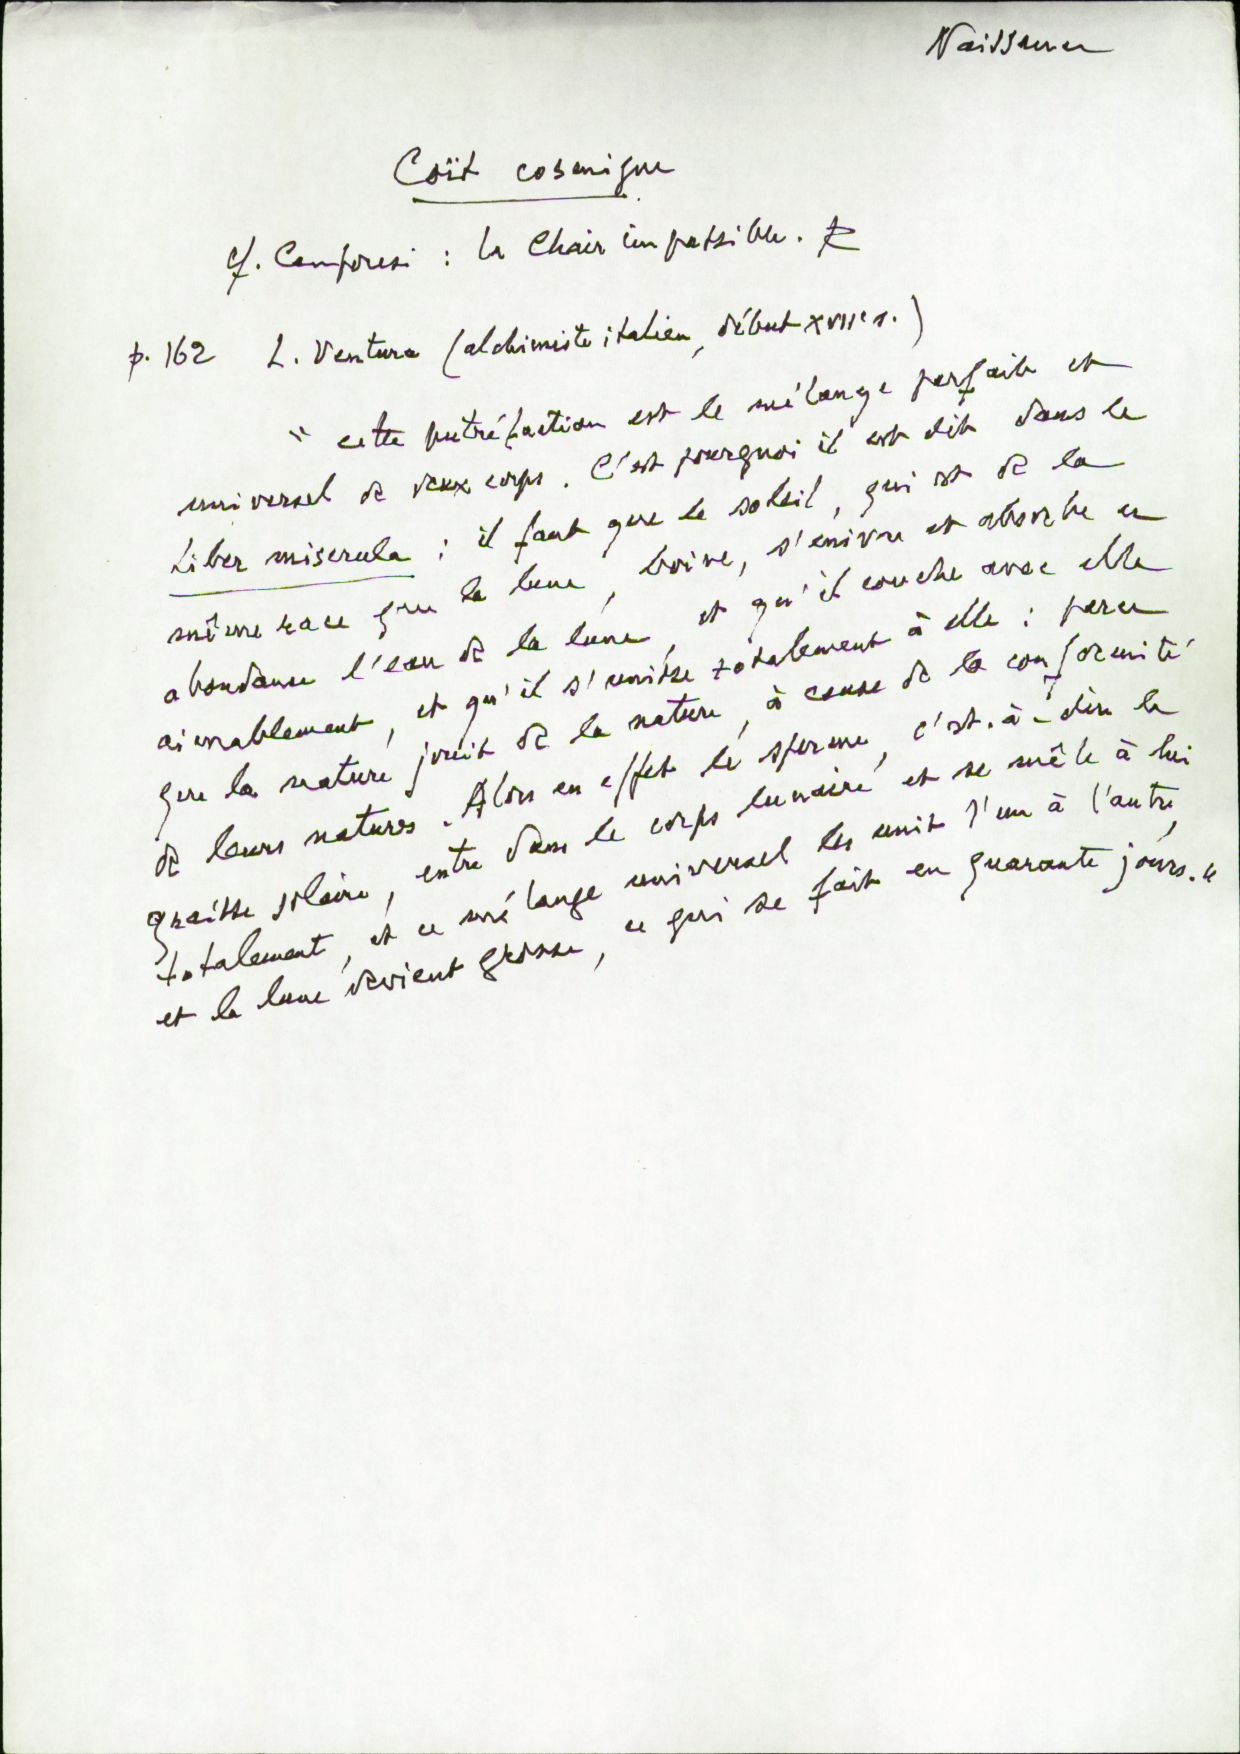 Naissance
Coït cosmique
cf. Camporesi : la Chair impassible.
p. 162 L. Ventura (alchimiste italien, début XVIIe s.)
" cette putréfaction est le mélange parfait et
universel de deux corps. C'est pourquoi il est dit dans le
Liber miserula : il faut que le soleil, qui est de la
même race que la lune, boive, s'enivre et absorbe en
abondance l'eau de la lune, et qu'il couche avec elle
aimablement, et qu'il s'unisse totalement à elle : parce
que la nature jouit de la nature, à cause de la conformité
de leurs natures. Alors en effet le sperme, c'est-à-dire la
graisse solaire, entre dans le corps lunaire et se mêle à lui
totalement, et ce mélange universel les unit l'un à l'autre,
et la lune devient grosse, ce qui se fait en quarante jours. "